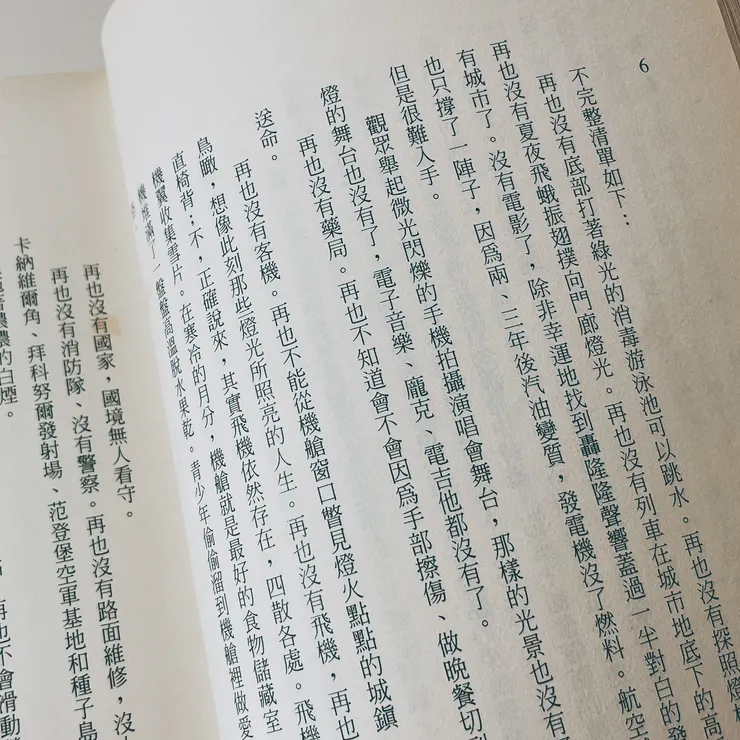 6
不完整清單如下：
再也沒有底部打著綠光的消毒游泳池可以跳水。再也沒有探照燈
再也沒有夏夜飛蛾振翅撲向門廊燈光。再也沒有列車在城市地底下的高
有城市了。沒有電影了，除非幸運地找到轟隆隆聲響蓋過一半對白的發
也只撐了一陣子，因為兩、三年後汽油變質，發電機沒了燃料。航空
但是很難人手。
觀眾舉起微光閃爍的手機拍攝演唱會舞台，那樣的光景也沒有
燈的舞台也沒有了，電子音樂、龐克、電吉他都沒有了。
再也沒有藥局。再也不知道會不會因為手部擦傷、做晚餐切到
送命。
再也沒有客機。再也不能從機艙窗口瞥見燈火點點的城鎮
鳥瞰，想像此刻那些燈光所照亮的人生。再也沒有飛機，再也
直椅背；不，正確說來，其實飛機依然存在，四散各處。飛機
機翼收集雪片。在寒冷的月分，機艙就是最好的食物儲藏室
盤盤高溫脫水果乾。青少年偷偷溜到機艙裡做愛
再也沒有國家，國境無人看守。
再也沒有消防隊、沒有警察。再也沒有路面維修，沒
卡納維爾角、拜科努爾發射場、范登堡空軍基地和種子島
濃的白煙。
再也不會滑動